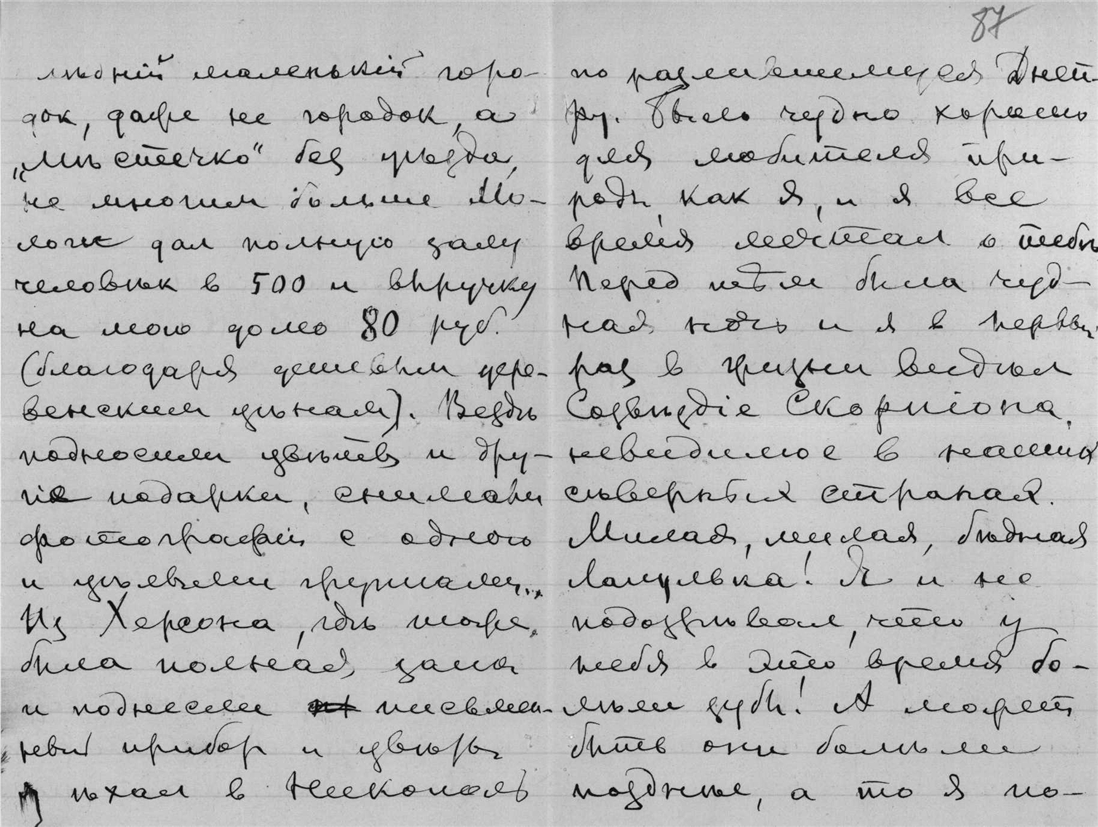 87
лѣдній маленькій горо-
док, даже не городок, а
„мѣстечко“ без уѣзда,
не многим больше Мо-
логи дал полную залу
человѣк в 500 и выручку
на мою долю 80 руб.
(благодаря дешевым дере-
венским цѣнам). Вездѣ
подносили цвѣты и дру-
гіе подарки, снимали
фотографіи с одного
и цѣлыми группами...
Из Херсона, гдѣ тоже
была полная зала
и поднесли письмен-
ный прибор и цвѣты
я ѣхал в Никополь
по разлившемуся Днѣп-
ру. Было чудно хорошо
для любителя при-
роды, как я, и я все
время мечтал о тебѣ.
Перед тѣм была чуд-
ная ночь и я в первый
раз в жизни видѣл
Созвѣздіе Скорпіона,
невидимое в наших
сѣверных странах.
Милая, милая, бѣдная
Лапулька! Я и не
подозрѣвал, что у
тебя в это время бо-
лѣли зубы! А может
быть они болѣли
позднѣе, а то я по-